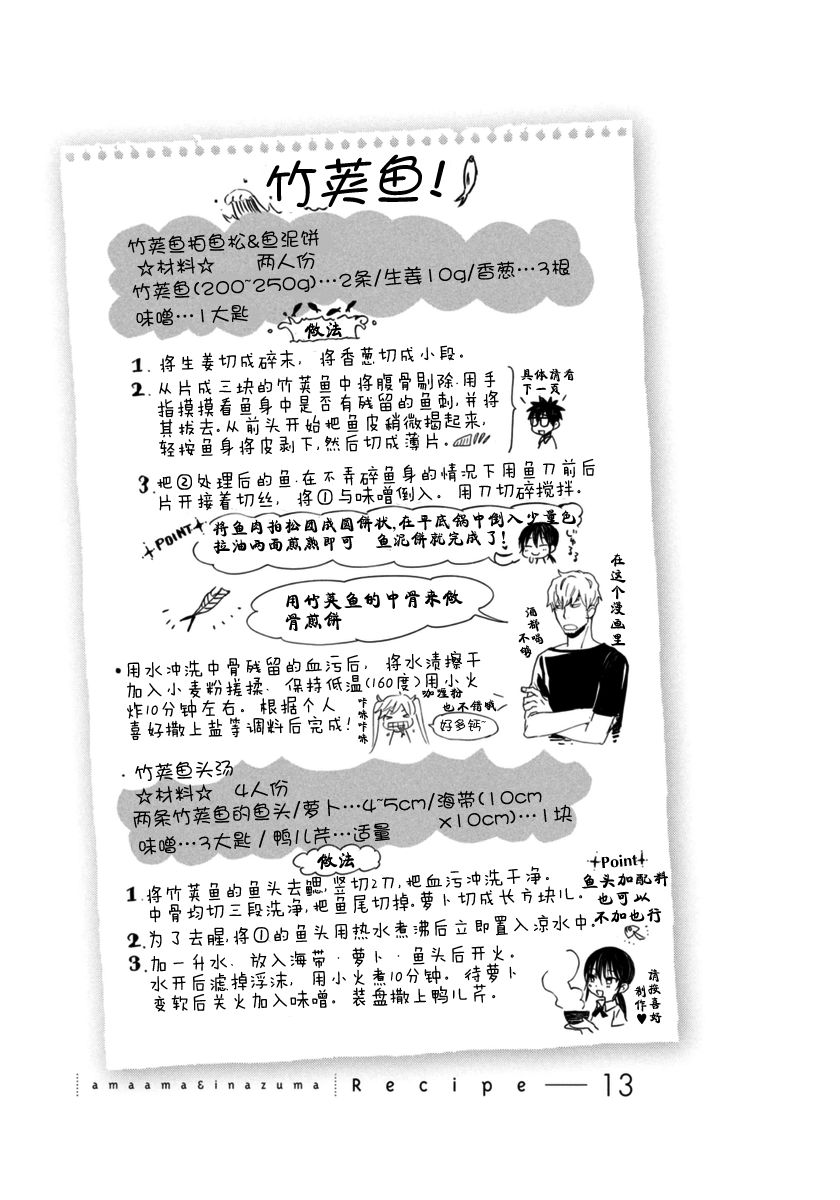 竹荚鱼!
竹荚鱼拍鱼松&鱼泥饼
☆材料☆ 两人份
竹荚鱼(200~250g)…2条/生姜10g/香葱…3根
味噌…1大匙
做法
1. 将生姜切成碎末, 将香葱切成小段。
2. 从片成三块的竹荚鱼中将腹骨剔除.用手
指摸摸看鱼身中是否有残留的鱼刺,并将
其拔去.从前头开始把鱼皮稍微揭起来,
轻按鱼身将皮剥下,然后切成薄片。
具体请看
下一页
3. 把②处理后的鱼.在不弄碎鱼身的情况下用鱼刀前后
片开接着切丝, 将①与味噌倒入。 用刀切碎搅拌.
POINT
将鱼肉拍松团成圆饼状,在平底锅中倒入少量色
拉油两面煎熟即可 鱼泥饼就完成了!
用竹荚鱼的中骨来做
骨煎饼
在这个漫画里
酒都喝不够
•用水冲洗中骨残留的血污后, 将水渍擦干
加入小麦粉搓揉. 保持低温(160度)用小火
炸10分钟左右。根据个人
喜好撒上盐等调料后完成!
咔哧咔哧
咖喱粉
也不错哦
好多钙~
·竹荚鱼头汤
☆材料☆ 4人份
两条竹荚鱼的鱼头/萝卜…4~5cm/海带(10cm
×10cm)…1块
味噌…3大匙/鸭儿芹…适量
做法
1. 将竹荚鱼的鱼头去鳃,竖切2刀,把血污冲洗干净。
中骨均切三段洗净,把鱼尾切掉.萝卜切成长方块儿.
2. 为了去腥,将①的鱼头用热水煮沸后立即置入凉水中.
3. 加一升水, 放入海带·萝卜·鱼头后开火.
水开后滤掉浮沫, 用小火煮10分钟。待萝卜
变软后关火加入味噌. 装盘撒上鸭儿芹。
Point
鱼头加配料
也可以
不加也行
请按喜好
制作♥
amaama&inazuma
Recipe — 13